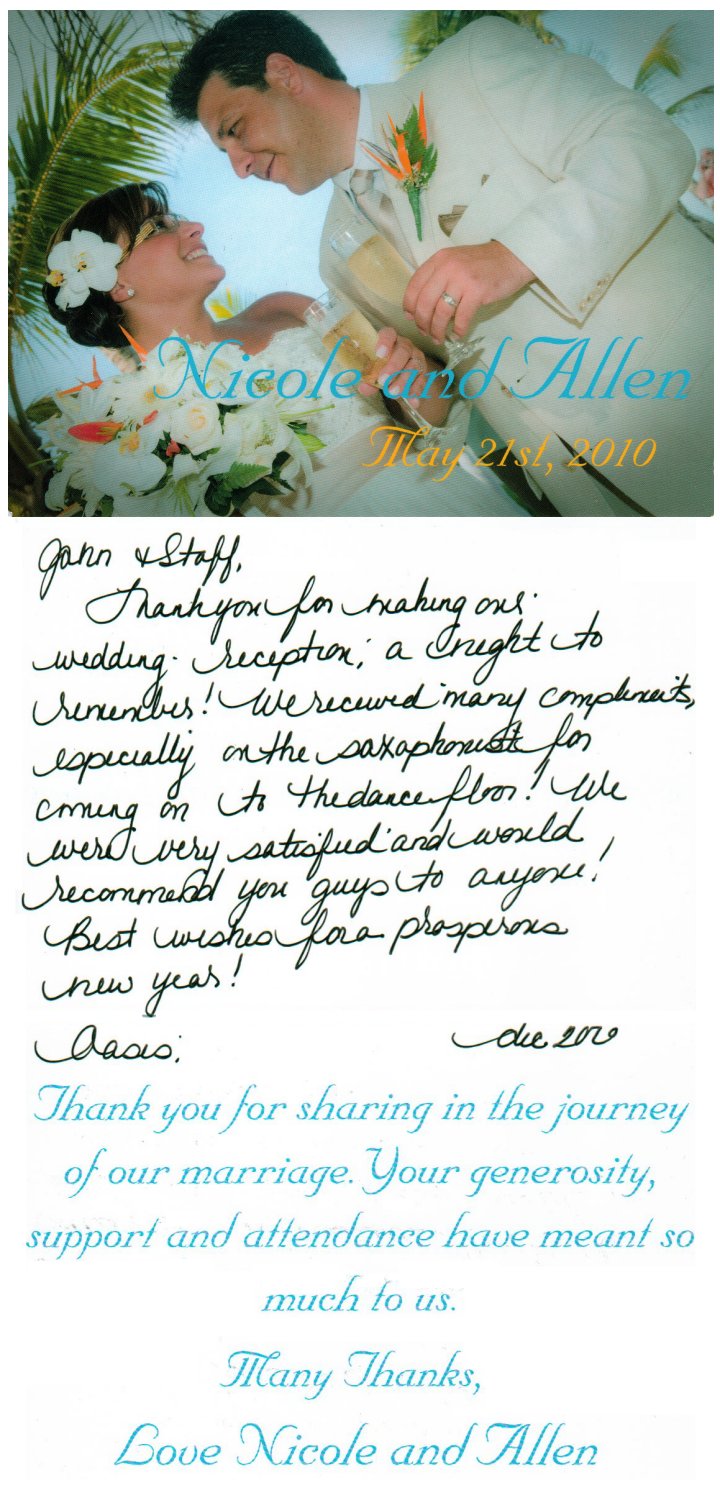 Nicole and Allen
May 21st, 2010
John & Staff,
Thank you for making our
wedding reception, a night to
remember! We received many compliments,
especially on the saxaphonist for
coming on to the dance floor! We
were very satisfied and would
recommend you guys to anyone!
Best wishes for a prosperous
new year!
Oasis. dec 2010
Thank you for sharing in the journey
of our marriage. Your generosity,
support and attendance have meant so
much to us.
Many Thanks,
Love Nicole and Allen